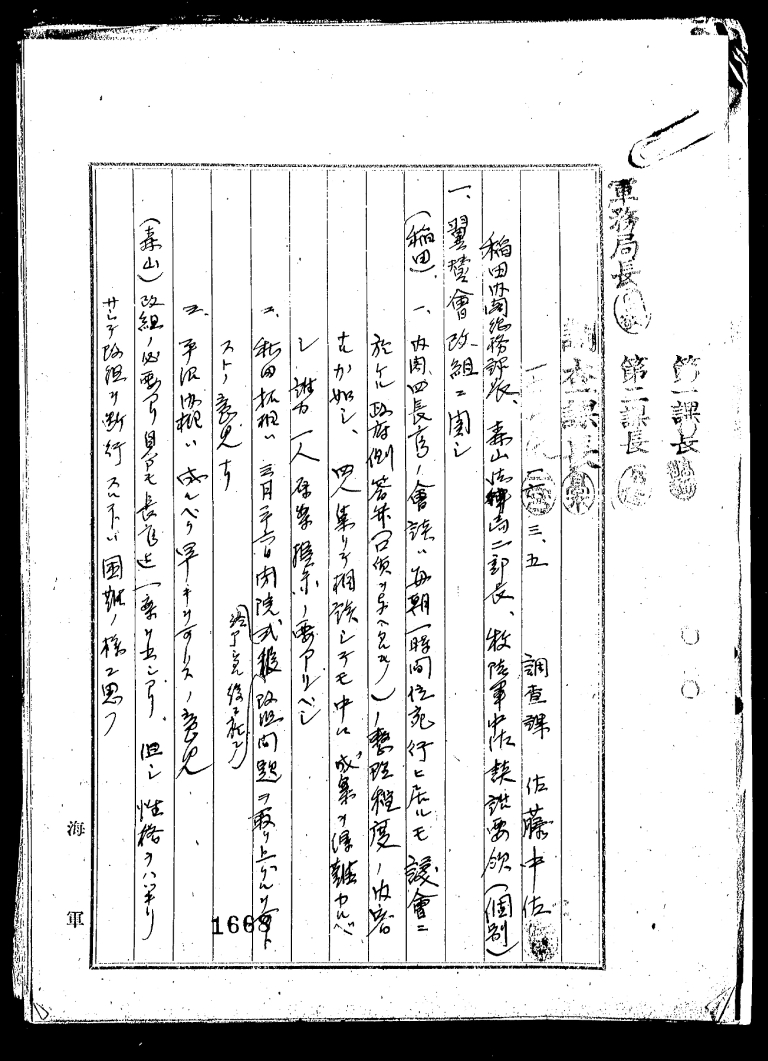 軍務局長
第一課長
第二課長
調査課長
一六、三、五 調査課 佐藤中佐
稲田内閣総務課長、森山法制局二部長、牧陸軍中佐談話要領(個別)
一、翼賛會改組ニ関シ
(稲田)、一、内閣四長官ノ會談ハ毎朝一時間位宛行ヒ居ルモ議會ニ
於ケル政府側答弁(口値ヲ与ヘタルモノ)ノ整理程度ノ内容
ナルガ如シ、四人集リテ相談シテモ中々成案ヲ得難カルベ
シ誰カ一人原案提示ノ要アルベシ
二、秋田拓相ハ三月二十六日閉院式後改組問題ヲ取リ上ゲ
ストノ意見ナリ
三、平沼内相ハ成ルベク早キヲ可トスノ意見
(森山)改組ノ必要アリ具体モ長官迄一案リ出シアリ、但シ性格ヲハッキリ
サシテ改組ヲ断行スルコトハ困難ノ様ニ思フ
1668
海軍